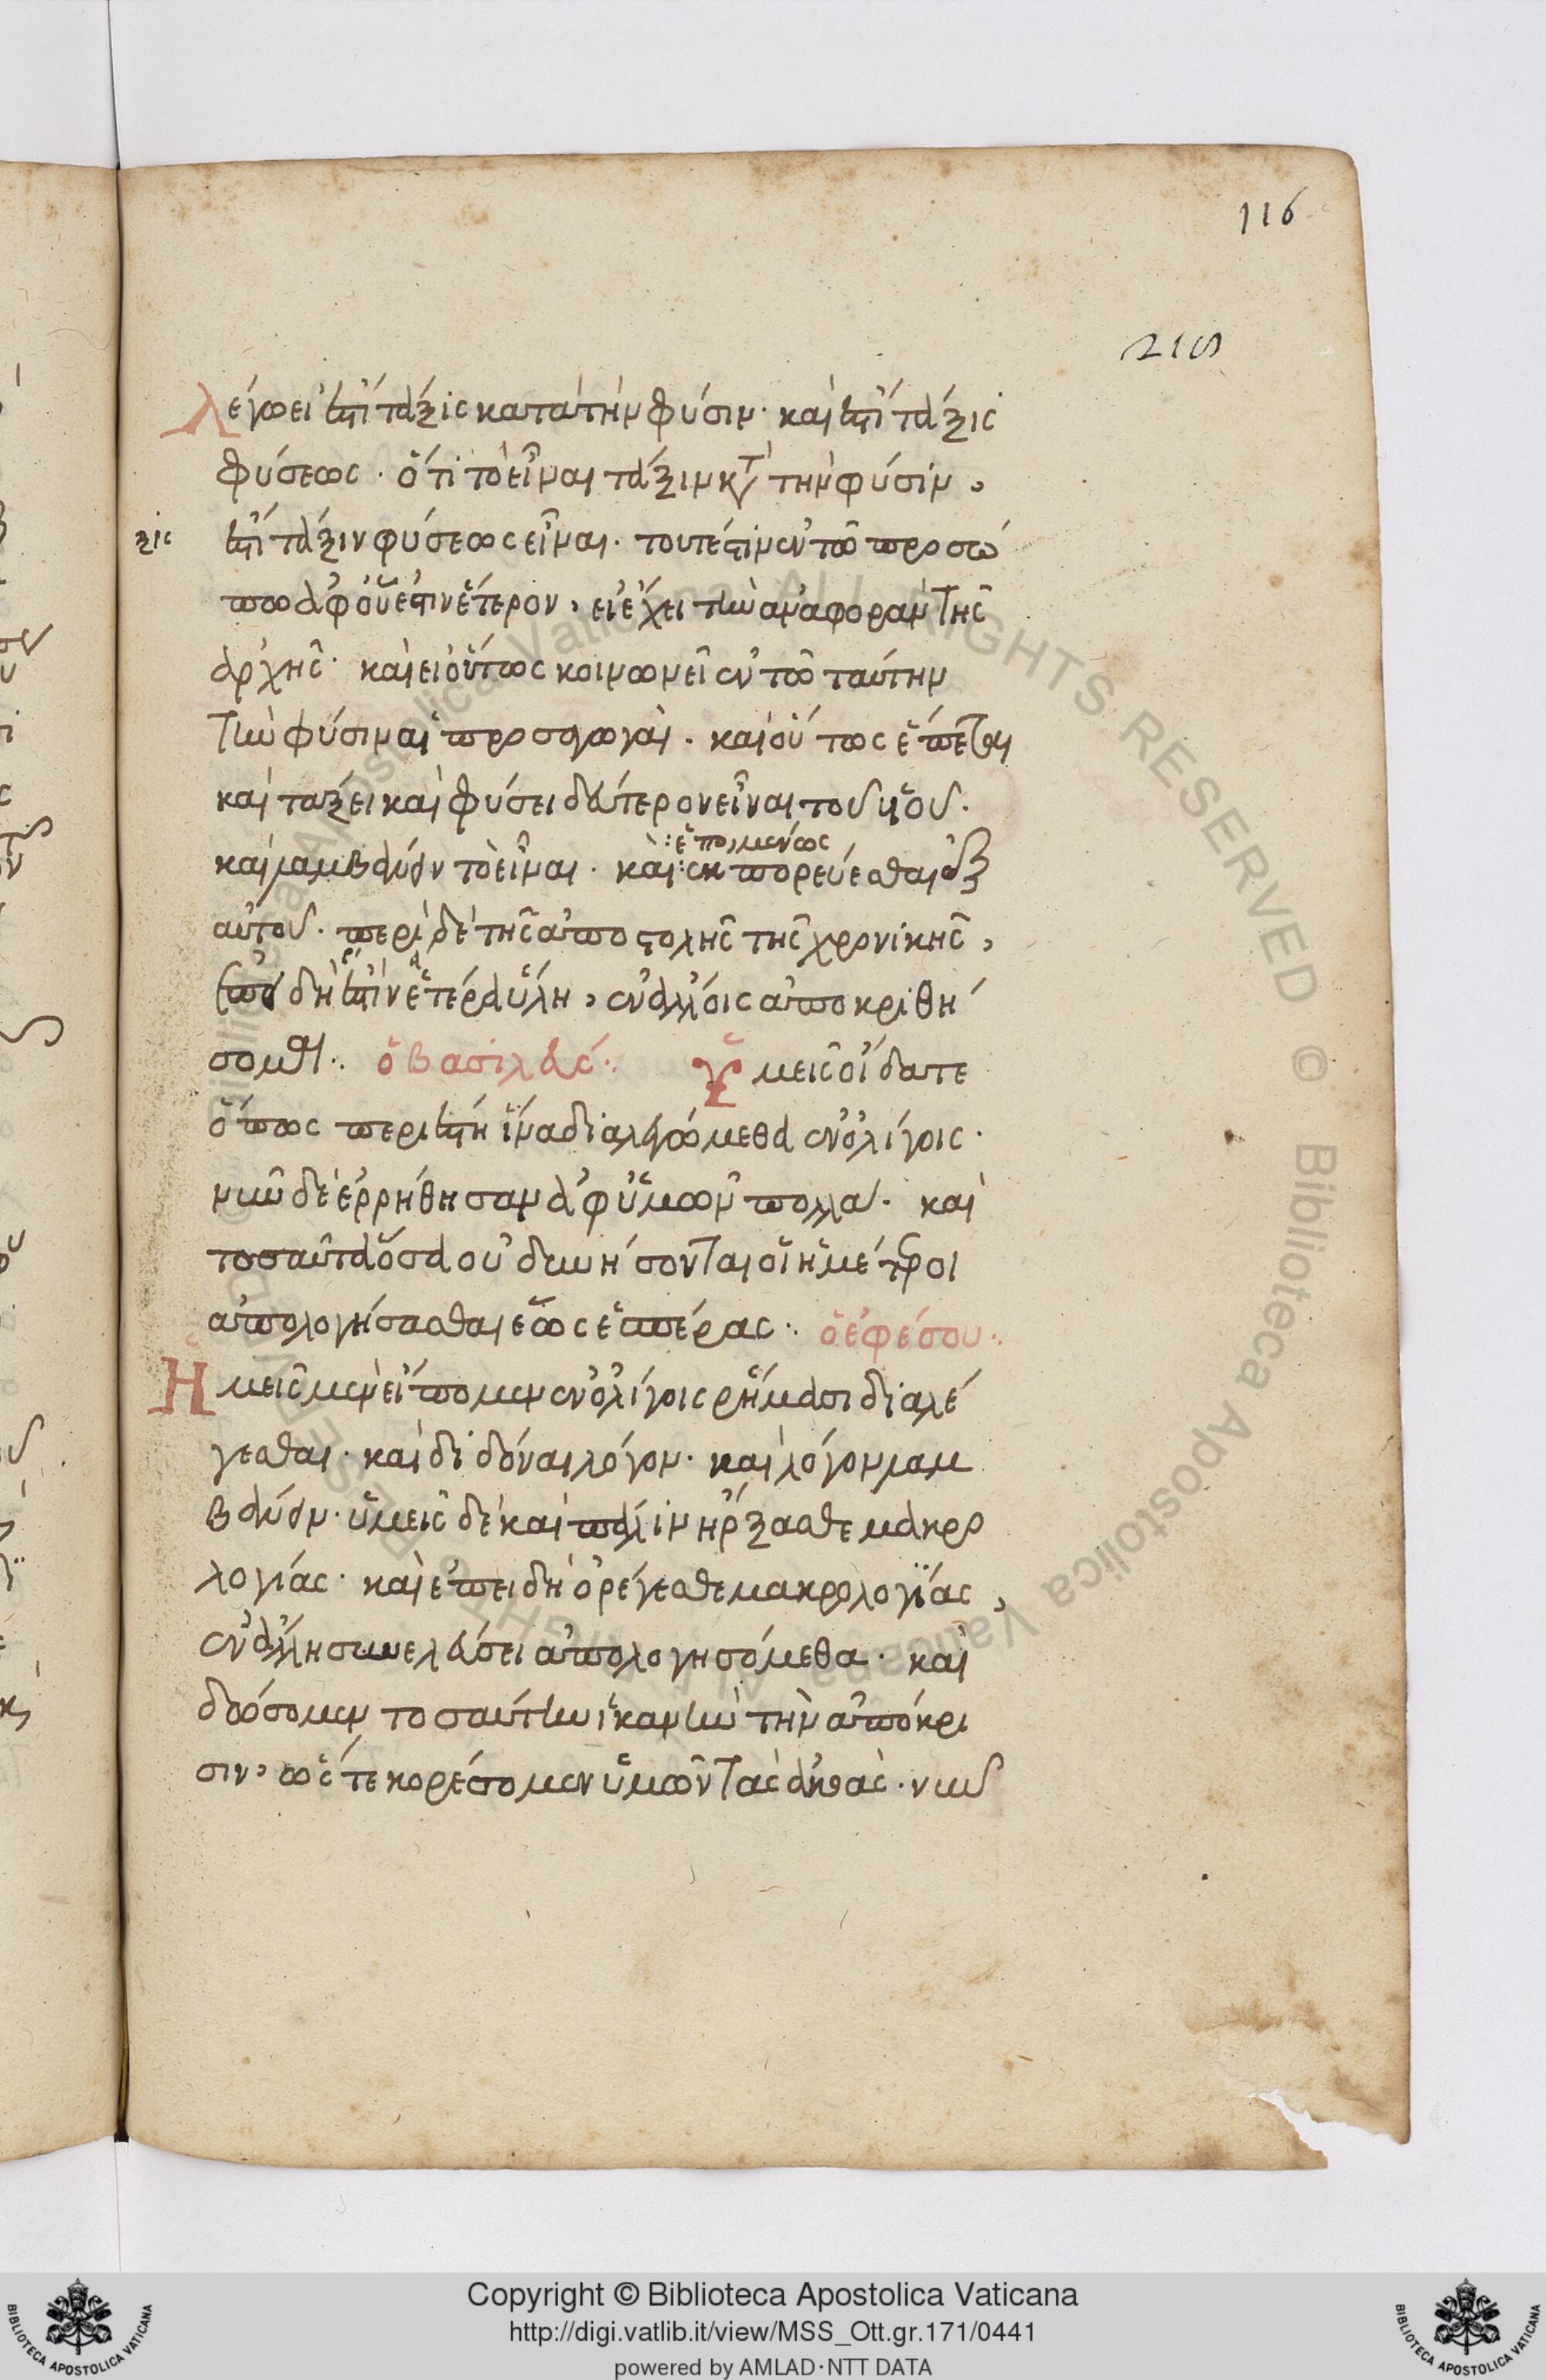 116
218
λέγω εἰ ἐστὶ τάξις κατὰ τὴν φύσιν· καὶ ἐστὶ τάξις
φύσεως· ὅτι τὸ εἶναι τάξιν κτ τὴν φύσιν,
ξις
ἐστὶ τάξιν φύσεως εἶναι. τουτέστιν ἐν τῶ προσώ
πω ἀφ' οὗ ἐστιν ἕτερον, εἰ ἔχει τὴν ἀναφορὰν τῆς
ἀρχῆς· καὶ εἰ οὕτως κοινωνεῖ ἐν τῶ ταύτην
τὴν φύσιν αἱ προσαγωγαὶ. καὶ οὕτως ἕπεται
καὶ τάξει καὶ φύσει δεύτερον εἶναι τοῦ υἱοῦ.
:ἑπομένως
καὶ λαμβάνειν τὸ εἶναι. καὶ: ἐκπορεύεσθαι ἐξ
αὐτοῦ. περὶ δὲ τῆς ἀποστολῆς τῆς χρονικῆς,
δὴ ἐστὶν ἑτέρα ὕλη, ἐν ἄλλοις ἀποκριθη
σόμεθα. ὁ βασιλεύς: Ὑμεῖς οἴδατε
ὅπως περιέστη ἵνα διαλεγώμεθα ἐν ὀλίγοις.
νῦν δὲ ἐρρήθησαν ἀφ' ὑμῶν πολλά. καὶ
τοσαῦτα ὅσα οὐ δυνήσονται οἱ ἡμέτεροι
ἀπολογήσασθαι ἕως ἑσπέρας. ὁ ἐφέσου.
Ἡμεῖς μὲν εἴπομεν ἐν ὀλίγοις ῥήμασι διαλέ
γεσθαι· καὶ διδόναι λόγον· καὶ λόγον λαμ
βάνειν· ὑμεῖς δὲ καὶ πάλιν ἤρξασθε μακρο
λογίας· καὶ ἐπειδὴ ὀρέγεσθε μακρολογίας,
ἐν ἄλλη συνελεύσει ἀπολογησόμεθα. καὶ
δώσομεν τοσαύτην ἱκανὴν τὴν ἀπόκρι
σιν, ὥστε κορέσομεν ὑμῶν τὰς ἀκοάς. νῦν
Copyright © Biblioteca Apostolica Vaticana
http://digi.vatlib.it/view/MSS_Ott.gr.171/0441
powered by AMLAD·NTT DATA
BIBLIOTECA APOSTOLICA VATICANA
BIBLIOTECA APOSTOLICA VATICANA